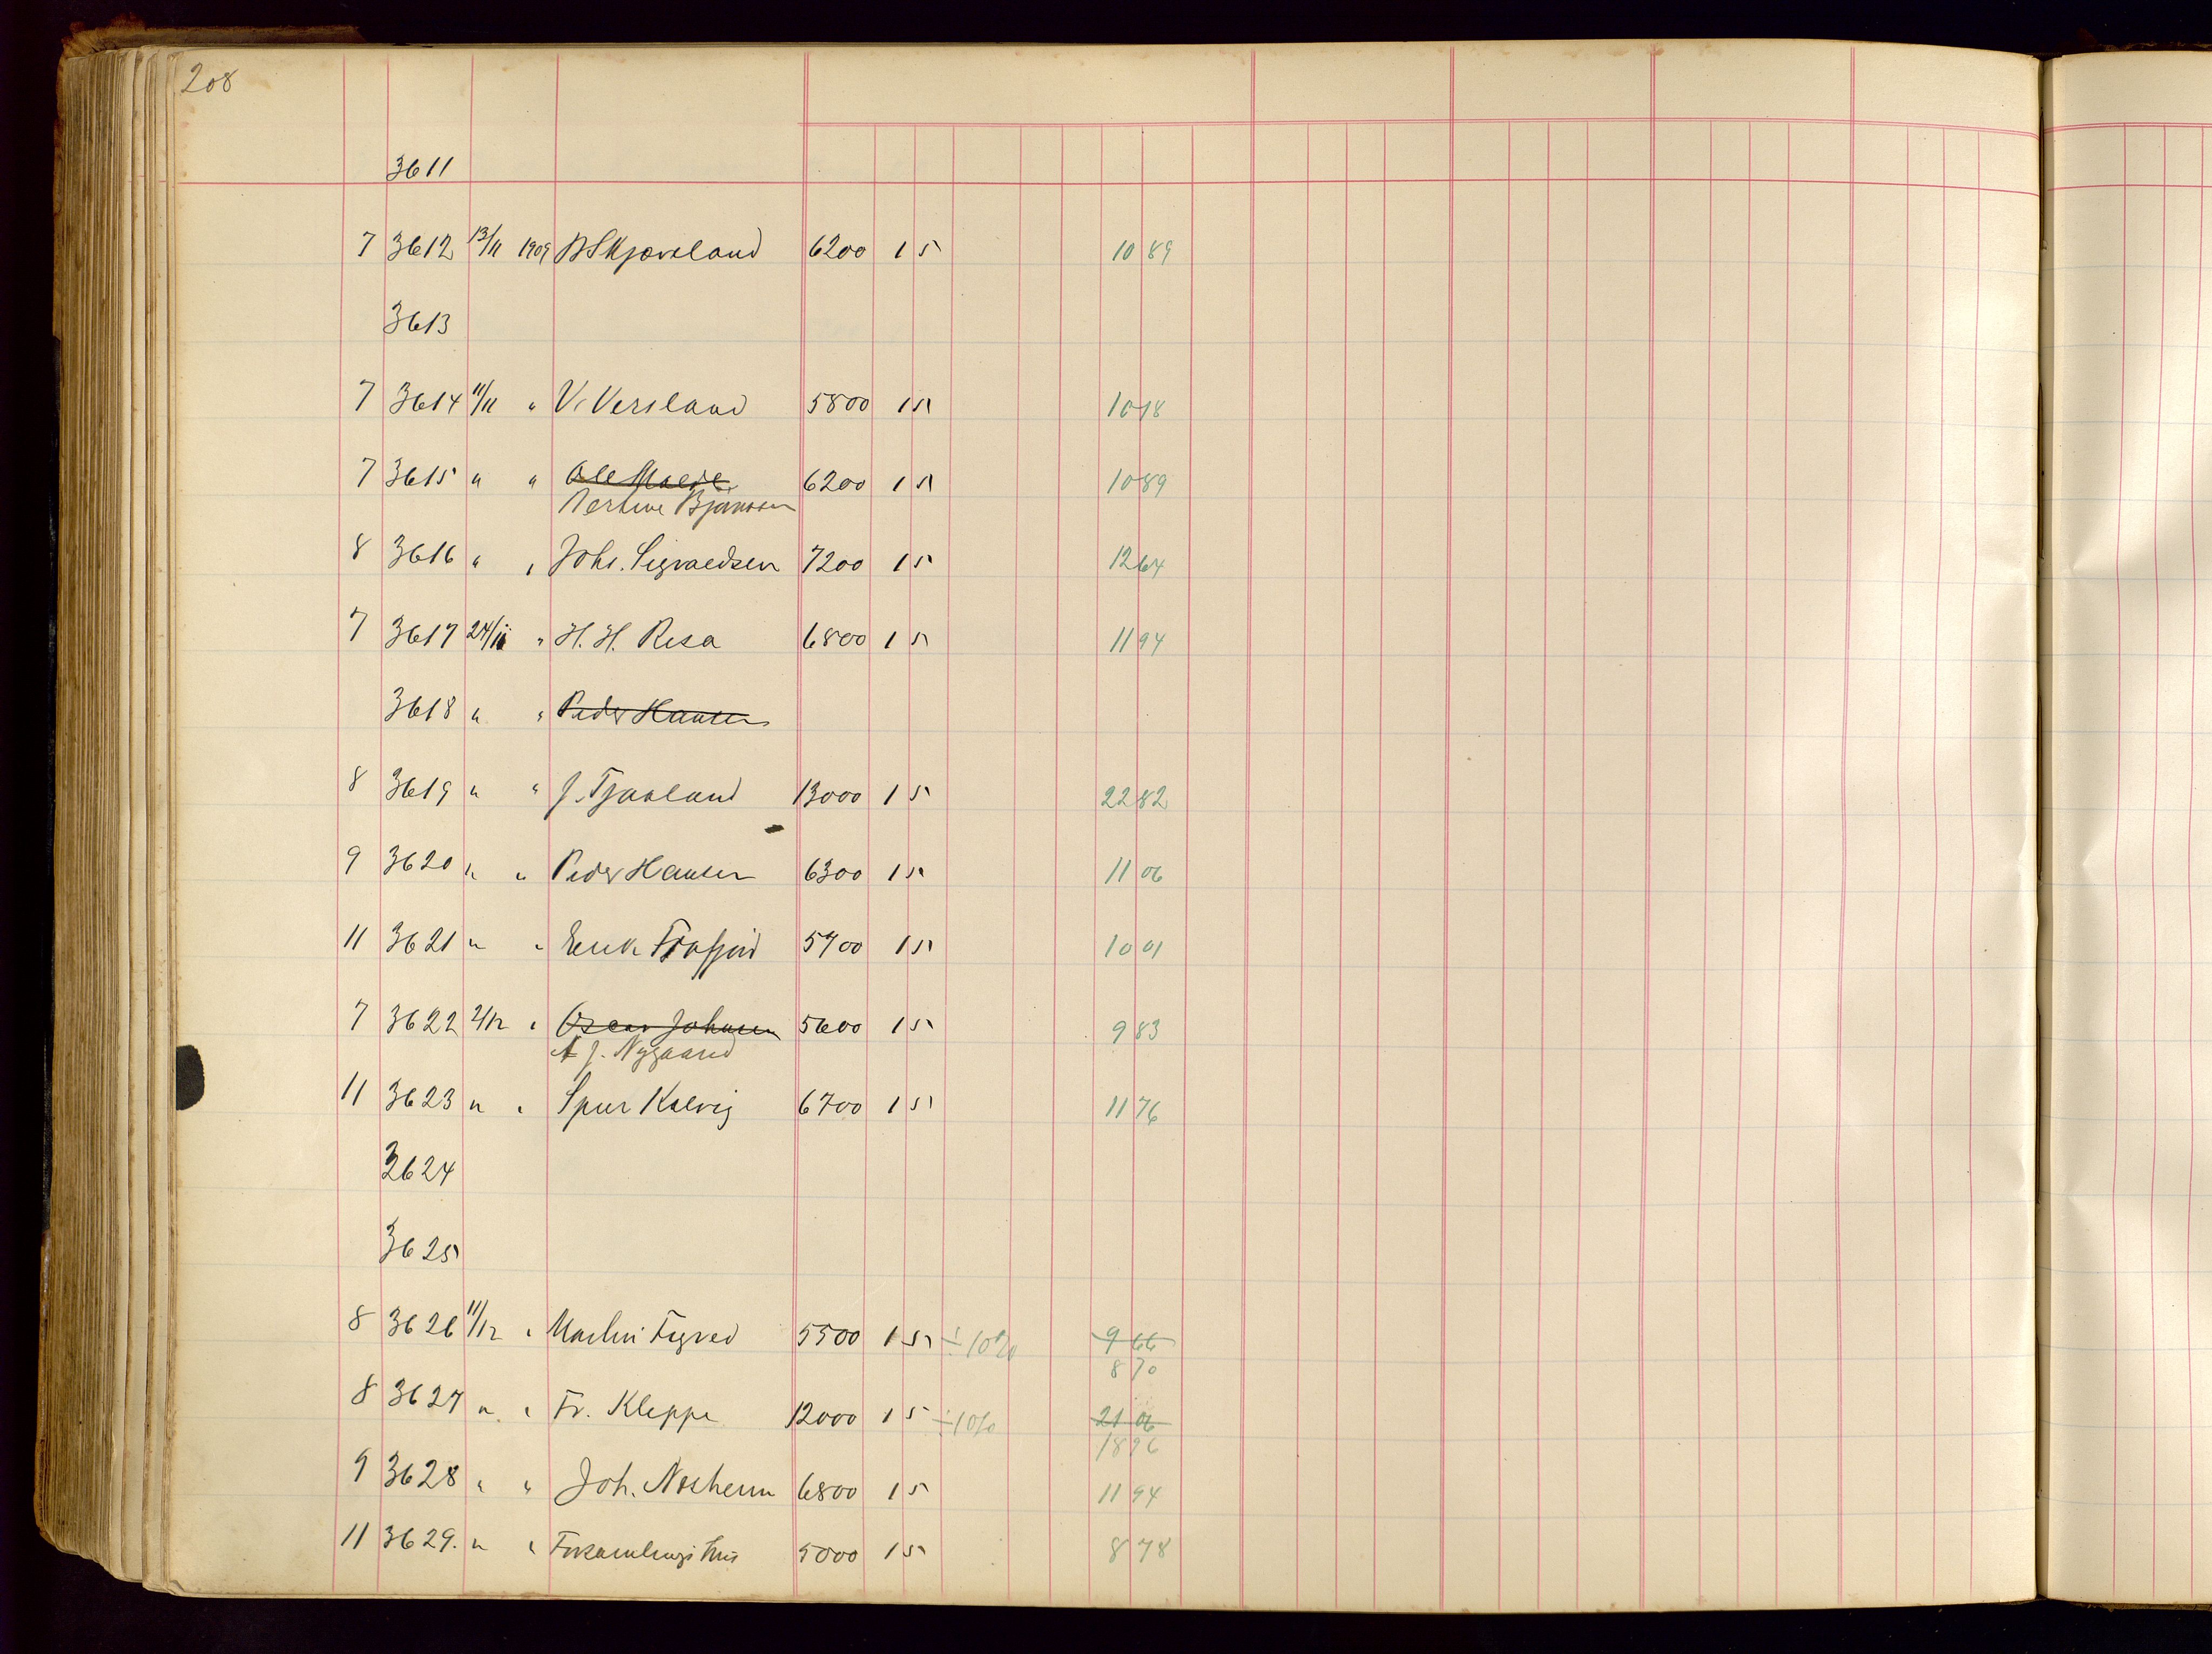 208
3611
7 3612 13/11 1909 B S Kjoreland 6200 1 5 10 89
3613
7 3614 11/11 " V. Versland 5800 1 5 10 18
7 3615 " " Ole Malde 6200 1 5 10 89
Bertine Bjørnsen
8 3616 " " Johs. Sigvaldsen 7200 1 5 12 64
7 3617 24/11 " H. H. Resa 6800 1 5 11 94
3618 " " Peder Hansen
8 3619 " " J. Tjaaland 13000 1 5 22 82
9 3620 " " Peder Hansen 6300 1 5 11 06
11 3621 " " Erik Frafjord 5700 1 5 10 01
7 3622 2/12 " Oscar Johnsen 5600 1 5 9 83
A J. Nygaard
11 3623 " " Kalvig 6700 1 5 11 76
3624
3625
8 3626 11/12 " Martin Figved 5500 1 5 ÷ 10% 9 66
8 70
8 3627 " " Fr. Kleppe 12000 1 5 ÷ 10% 21 06
18 96
9 3628 " " Joh. Norheim 6800 1 5 11 94
11 3629. " " Forsamlings hus 5000 1 5 8 78